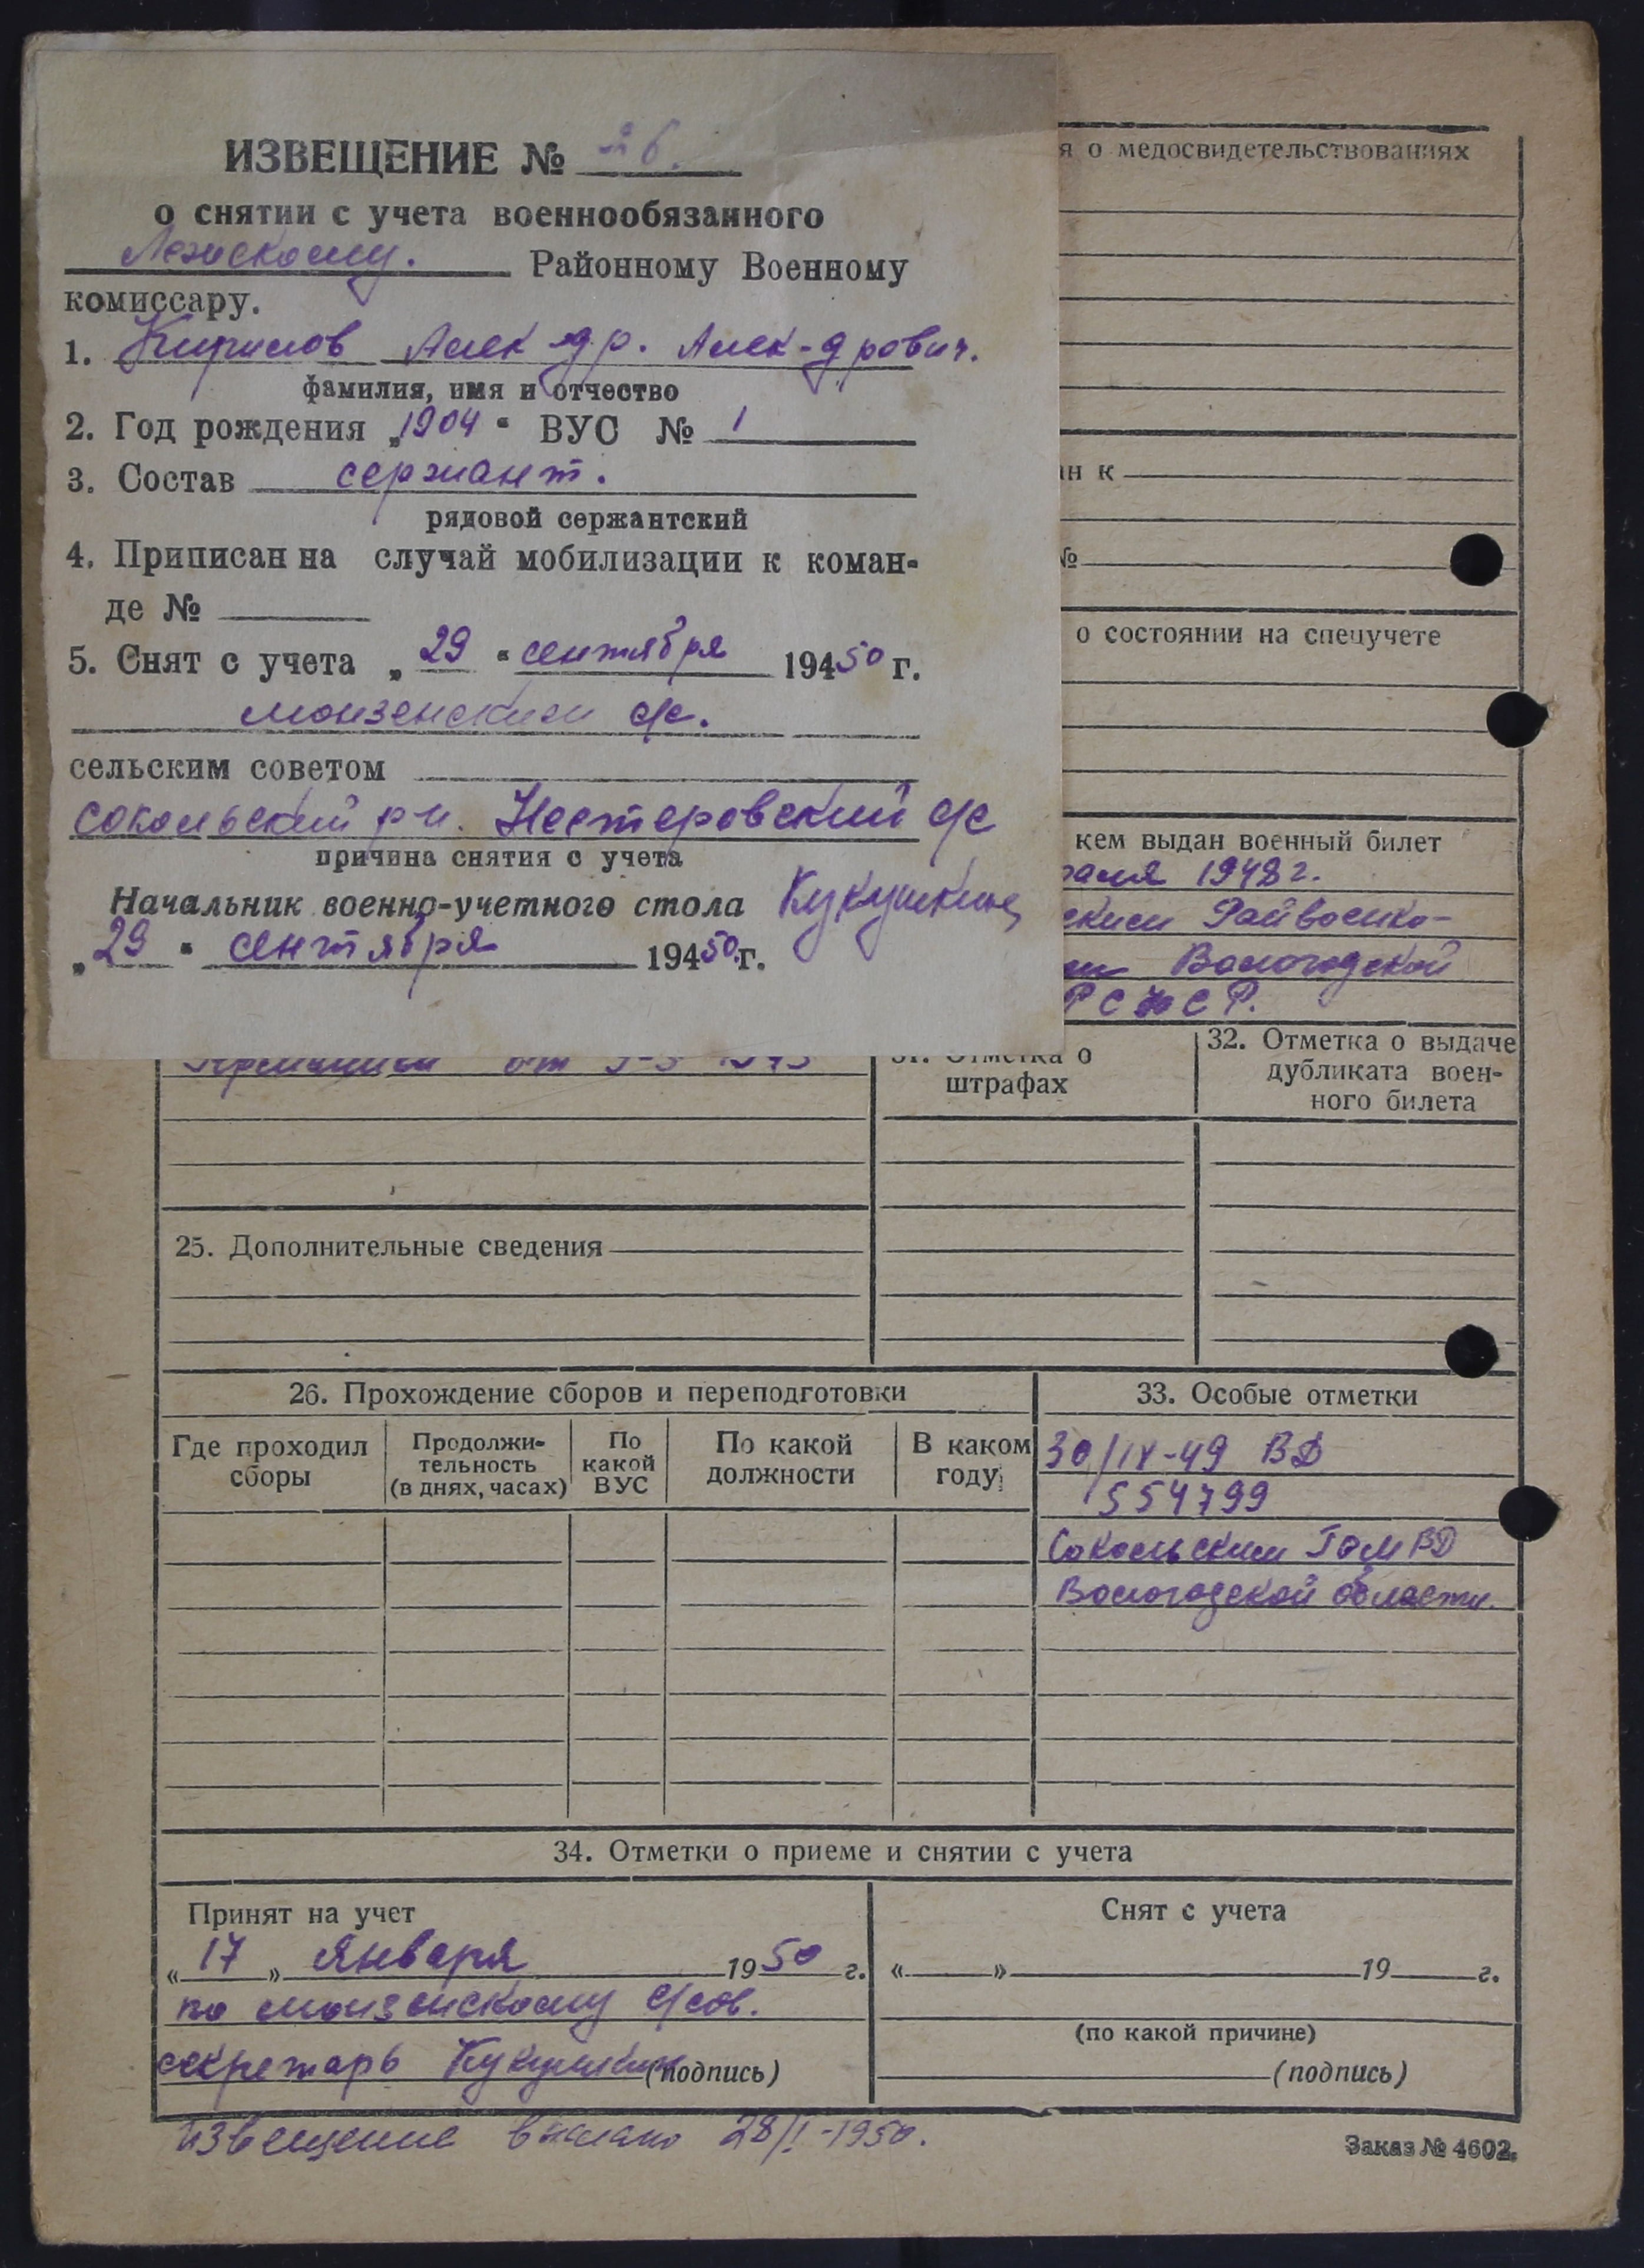 ИЗВЕЩЕНИЕ № 26.
о снятии с учета военнообязанного
Лежскому. Районному Военному
комиссару.
1. Кирилов Алек-др. Алек-дрович.
фамилия, имя и отчество
2. Год рождения „1904“ ВУС № 1
3. Состав сержант.
рядовой сержантский
4. Приписан на случай мобилизации к коман-
де №
5. Снят с учета „29“ сентября 19450 г.
монзенским с/с.
сельским советом
сокольский р-н. Нестеровский с/с
причина снятия с учета
Начальник военно-учетного стола Кукушкин
„29“ сентября 19450 г.
я о медосвидетельствованиях
ан к
№
о состоянии на спецучете
кем выдан военный билет
раля 1948 г.
ским Райвоенко-
ом Вологодской
РСФСР.
Германии от
31. Отметка о
штрафах
32. Отметка о выдаче
дубликата воен-
ного билета
25. Дополнительные сведения
26. Прохождение сборов и переподготовки
Где проходил
сборы
Продолжи-
тельность
(в днях, часах)
По
какой
ВУС
По какой
должности
В каком
году
33. Особые отметки
30/IX-49 ВД
554799
Сокольским ГОМВД
Вологодской области.
34. Отметки о приеме и снятии с учета
Принят на учет
«17» Января 1950 г.
по монзенскому с/сов.
секретарь Кукушкин (подпись)
Снят с учета
« » 19 г.
(по какой причине)
(подпись)
извещение выслано 28/I-1950.
Заказ № 4602.